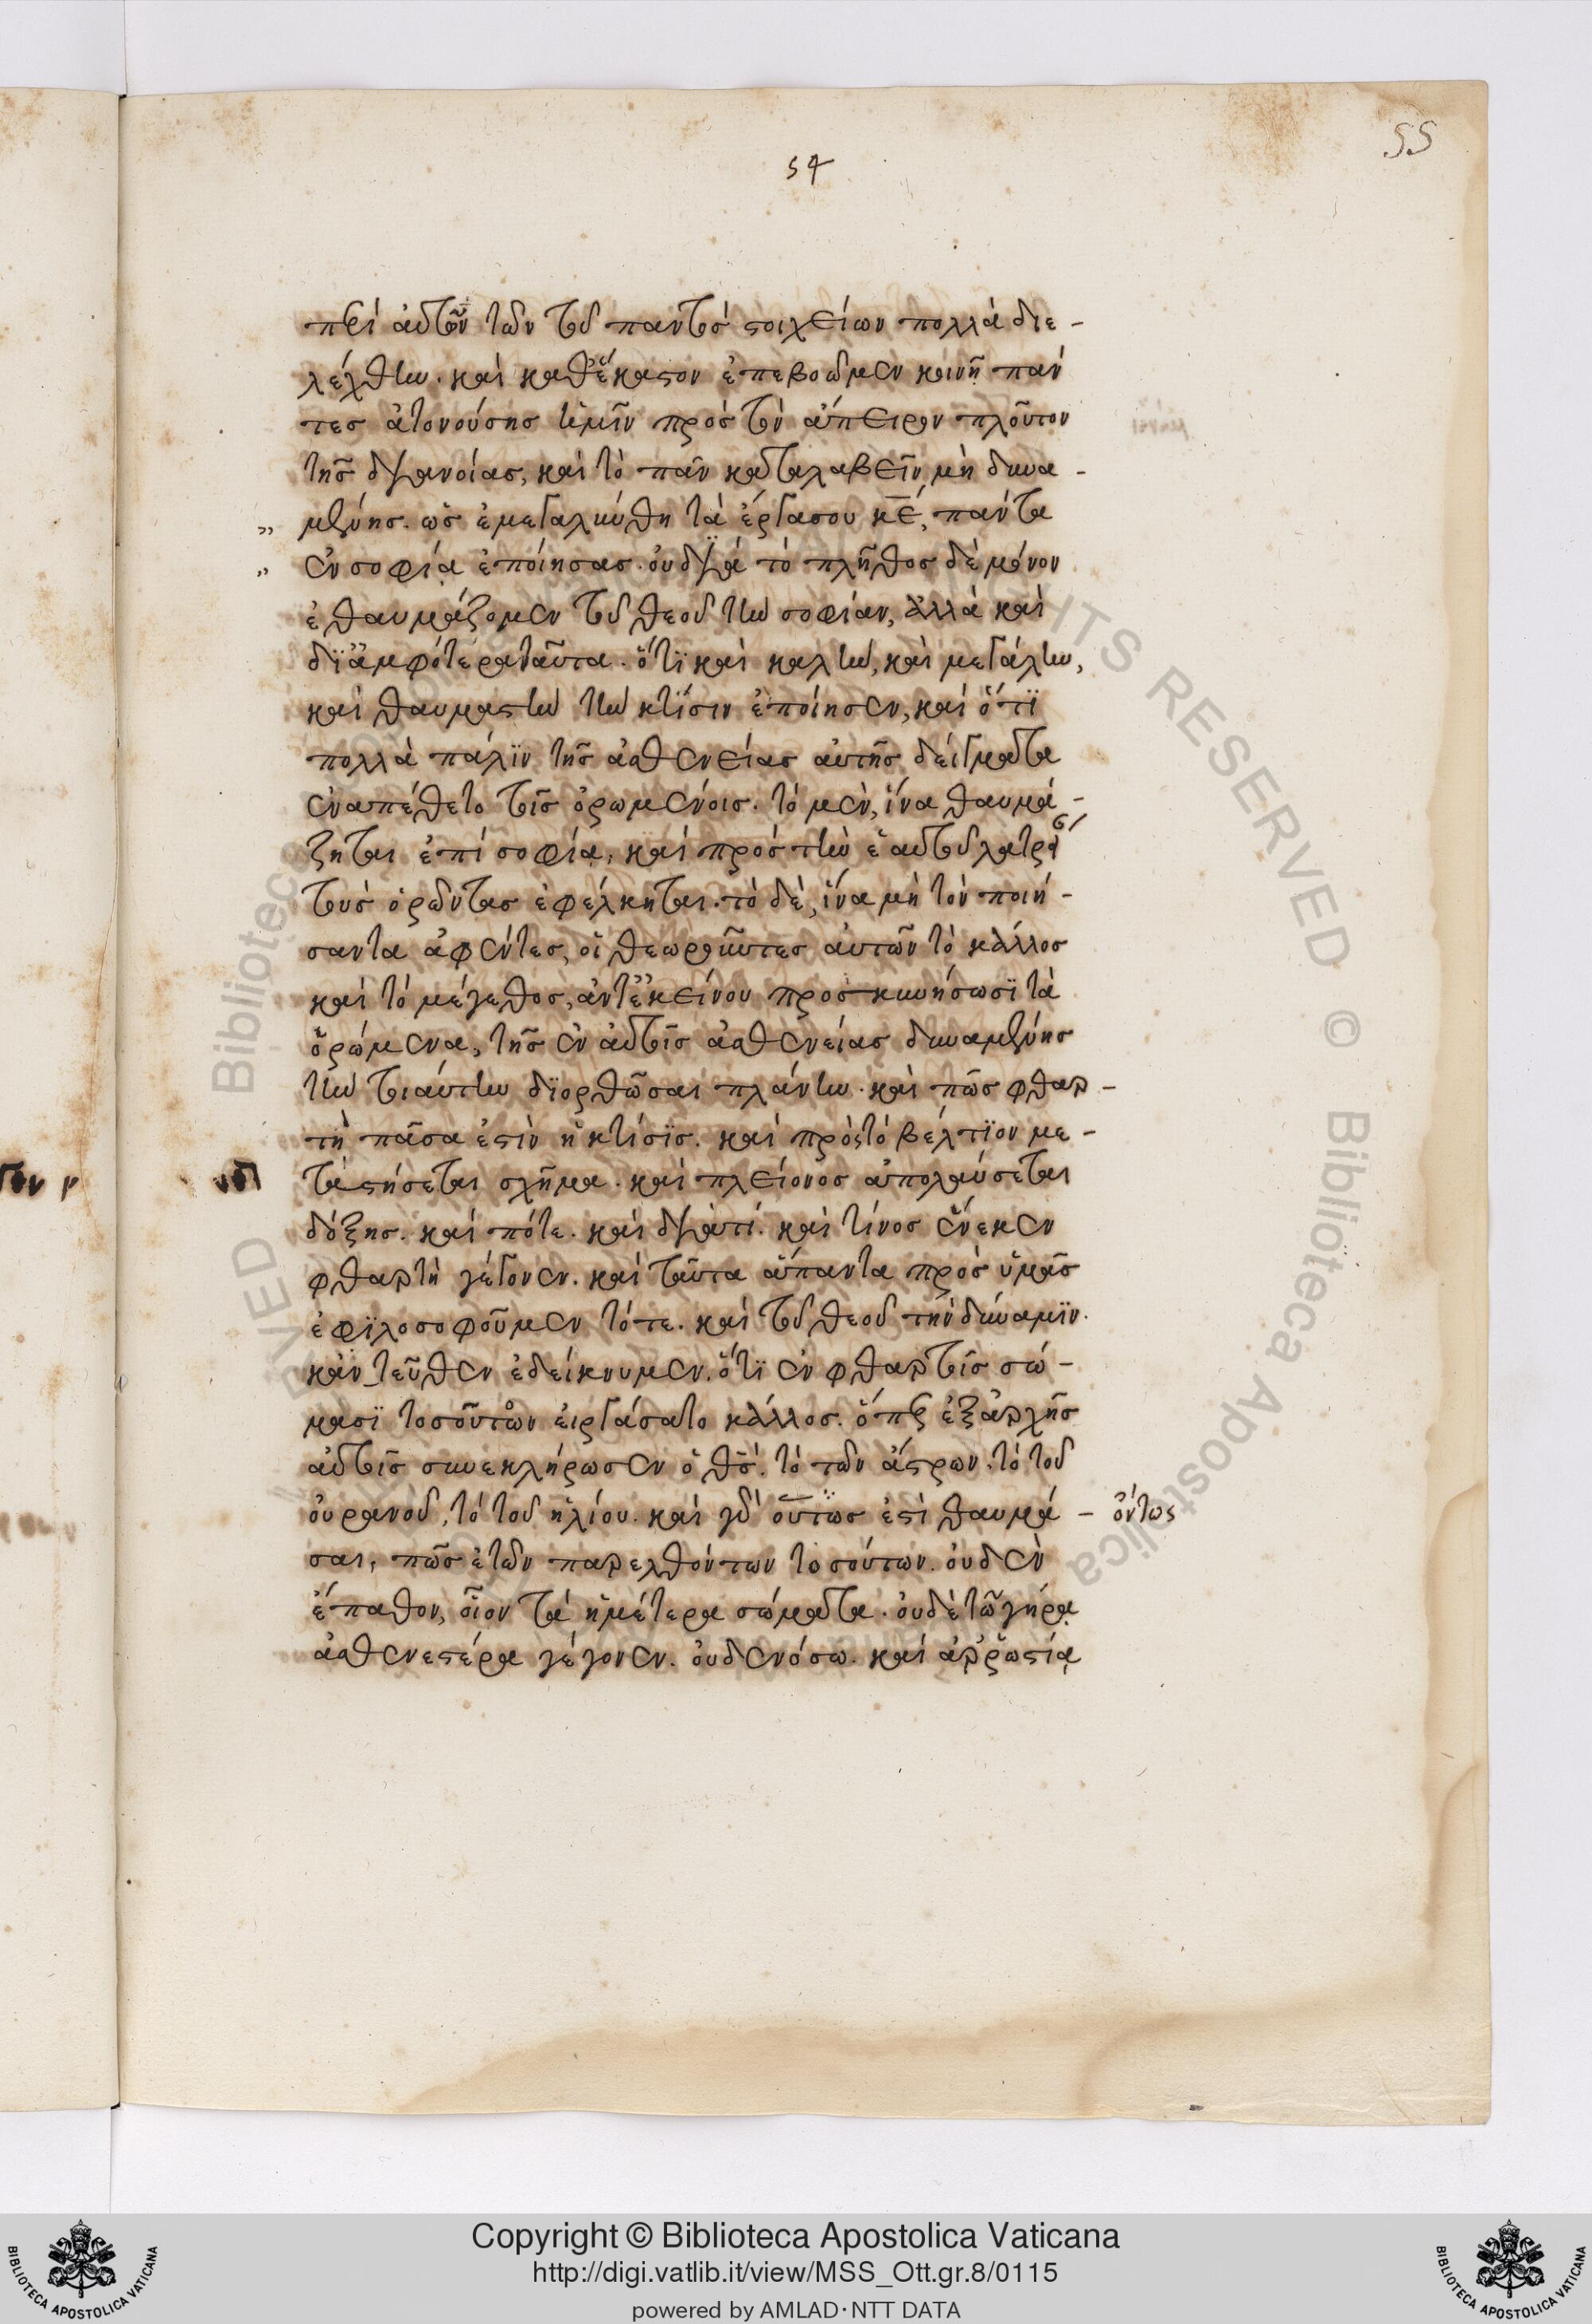 55
54
περὶ αὐτῶν τῶν τοῦ παντὸς στοιχείων πολλὰ διε-
λέχθην. καὶ καθ' ἕκαστον ἐπεβοῶμεν κοινῇ πάν
τες ἀτονούσης ἡμῖν πρὸς τὸν ἄπειρον πλοῦτον
τῆς διανοίας, καὶ τὸ πᾶν καταλαβεῖν μὴ δυνα-
„ μένης. ὡς ἐμεγαλύνθη τὰ ἔργα σου κ̅ε̅, πάντα
„ ἐν σοφίᾳ ἐποίησας. οὐ διὰ τὸ πλῆθος δὲ μόνον
ἐθαυμάζομεν τοῦ θεοῦ τὴν σοφίαν, ἀλλὰ καὶ
δϊ' ἀμφότερα ταῦτα. ὅτϊ καὶ καλὴν, καὶ μεγάλην,
καὶ θαυμαστὴν τὴν κτίσιν ἐποίησεν, καὶ ὅτϊ
πολλὰ πάλϊν τῆς ἀσθενείας αὐτῆς δείγματα
ἐναπέθετο τοῖς ὁρωμένοις. τὸ μὲν, ἵνα θαυμά-
ζηται ἐπὶ σοφίᾳ, καὶ πρὸς τὴν ἑαυτοῦ λατρεί
τοὺς ὁρῶντας ἐφέλκηται. τὸ δὲ, ἵνα μὴ τὸν ποιή-
σαντα ἀφέντες, οἱ θεωροῦντες αὐτῶν τὸ κάλλος
καὶ τὸ μέγεθος, ἀντ' ἐκείνου προσκυνήσωσϊ τὰ
ὁρώμενα, τῆς ἐν αὐτοῖς ἀσθενείας δυναμένης
τὴν τοιαύτην δϊορθῶσαι πλάνην. καὶ πῶς φθαρ-
τὴ πᾶσα ἐστὶν ἡ κτίσϊς. καὶ πρὸς τὸ βέλτϊον με-
ταστήσεται σχῆμα. καὶ πλείονος ἀπολαύσεται
δόξης. καὶ πότε. καὶ διατί. καὶ τίνος ἕνεκεν
φθαρτὴ γέγονεν. καὶ ταῦτα ἅπαντα πρὸς ὑμᾶς
ἐφϊλοσοφοῦμεν τότε. καὶ τοῦ θεοῦ τὴν δύναμϊν.
κἀντεῦθεν ἐδείκνυμεν. ὅτϊ ἐν φθαρτοῖς σώ-
μασϊ τοσοῦτον εἰργάσατο κάλλος. ὅπερ ἐξ ἀρχῆς
αὐτοῖς συνεκλήρωσεν ὁ θς. τὸ τῶν ἄστρων. τὸ τοῦ
οὐρανοῦ, τὸ τοῦ ἡλίου. καὶ γὰρ οὕτως ἐστὶ θαυμά- ὄντως
σαι, πῶς ἐτῶν παρελθόντων τοσούτων. οὐδὲν
ἔπαθον, οἷον τὰ ἡμέτερα σώματα. οὐδὲ τῷ γήρᾳ
ἀσθενεστέρα γέγονεν. οὐδὲ νόσω. καὶ ἀῤῥωστίᾳ
Copyright © Biblioteca Apostolica Vaticana
http://digi.vatlib.it/view/MSS_Ott.gr.8/0115
powered by AMLAD·NTT DATA